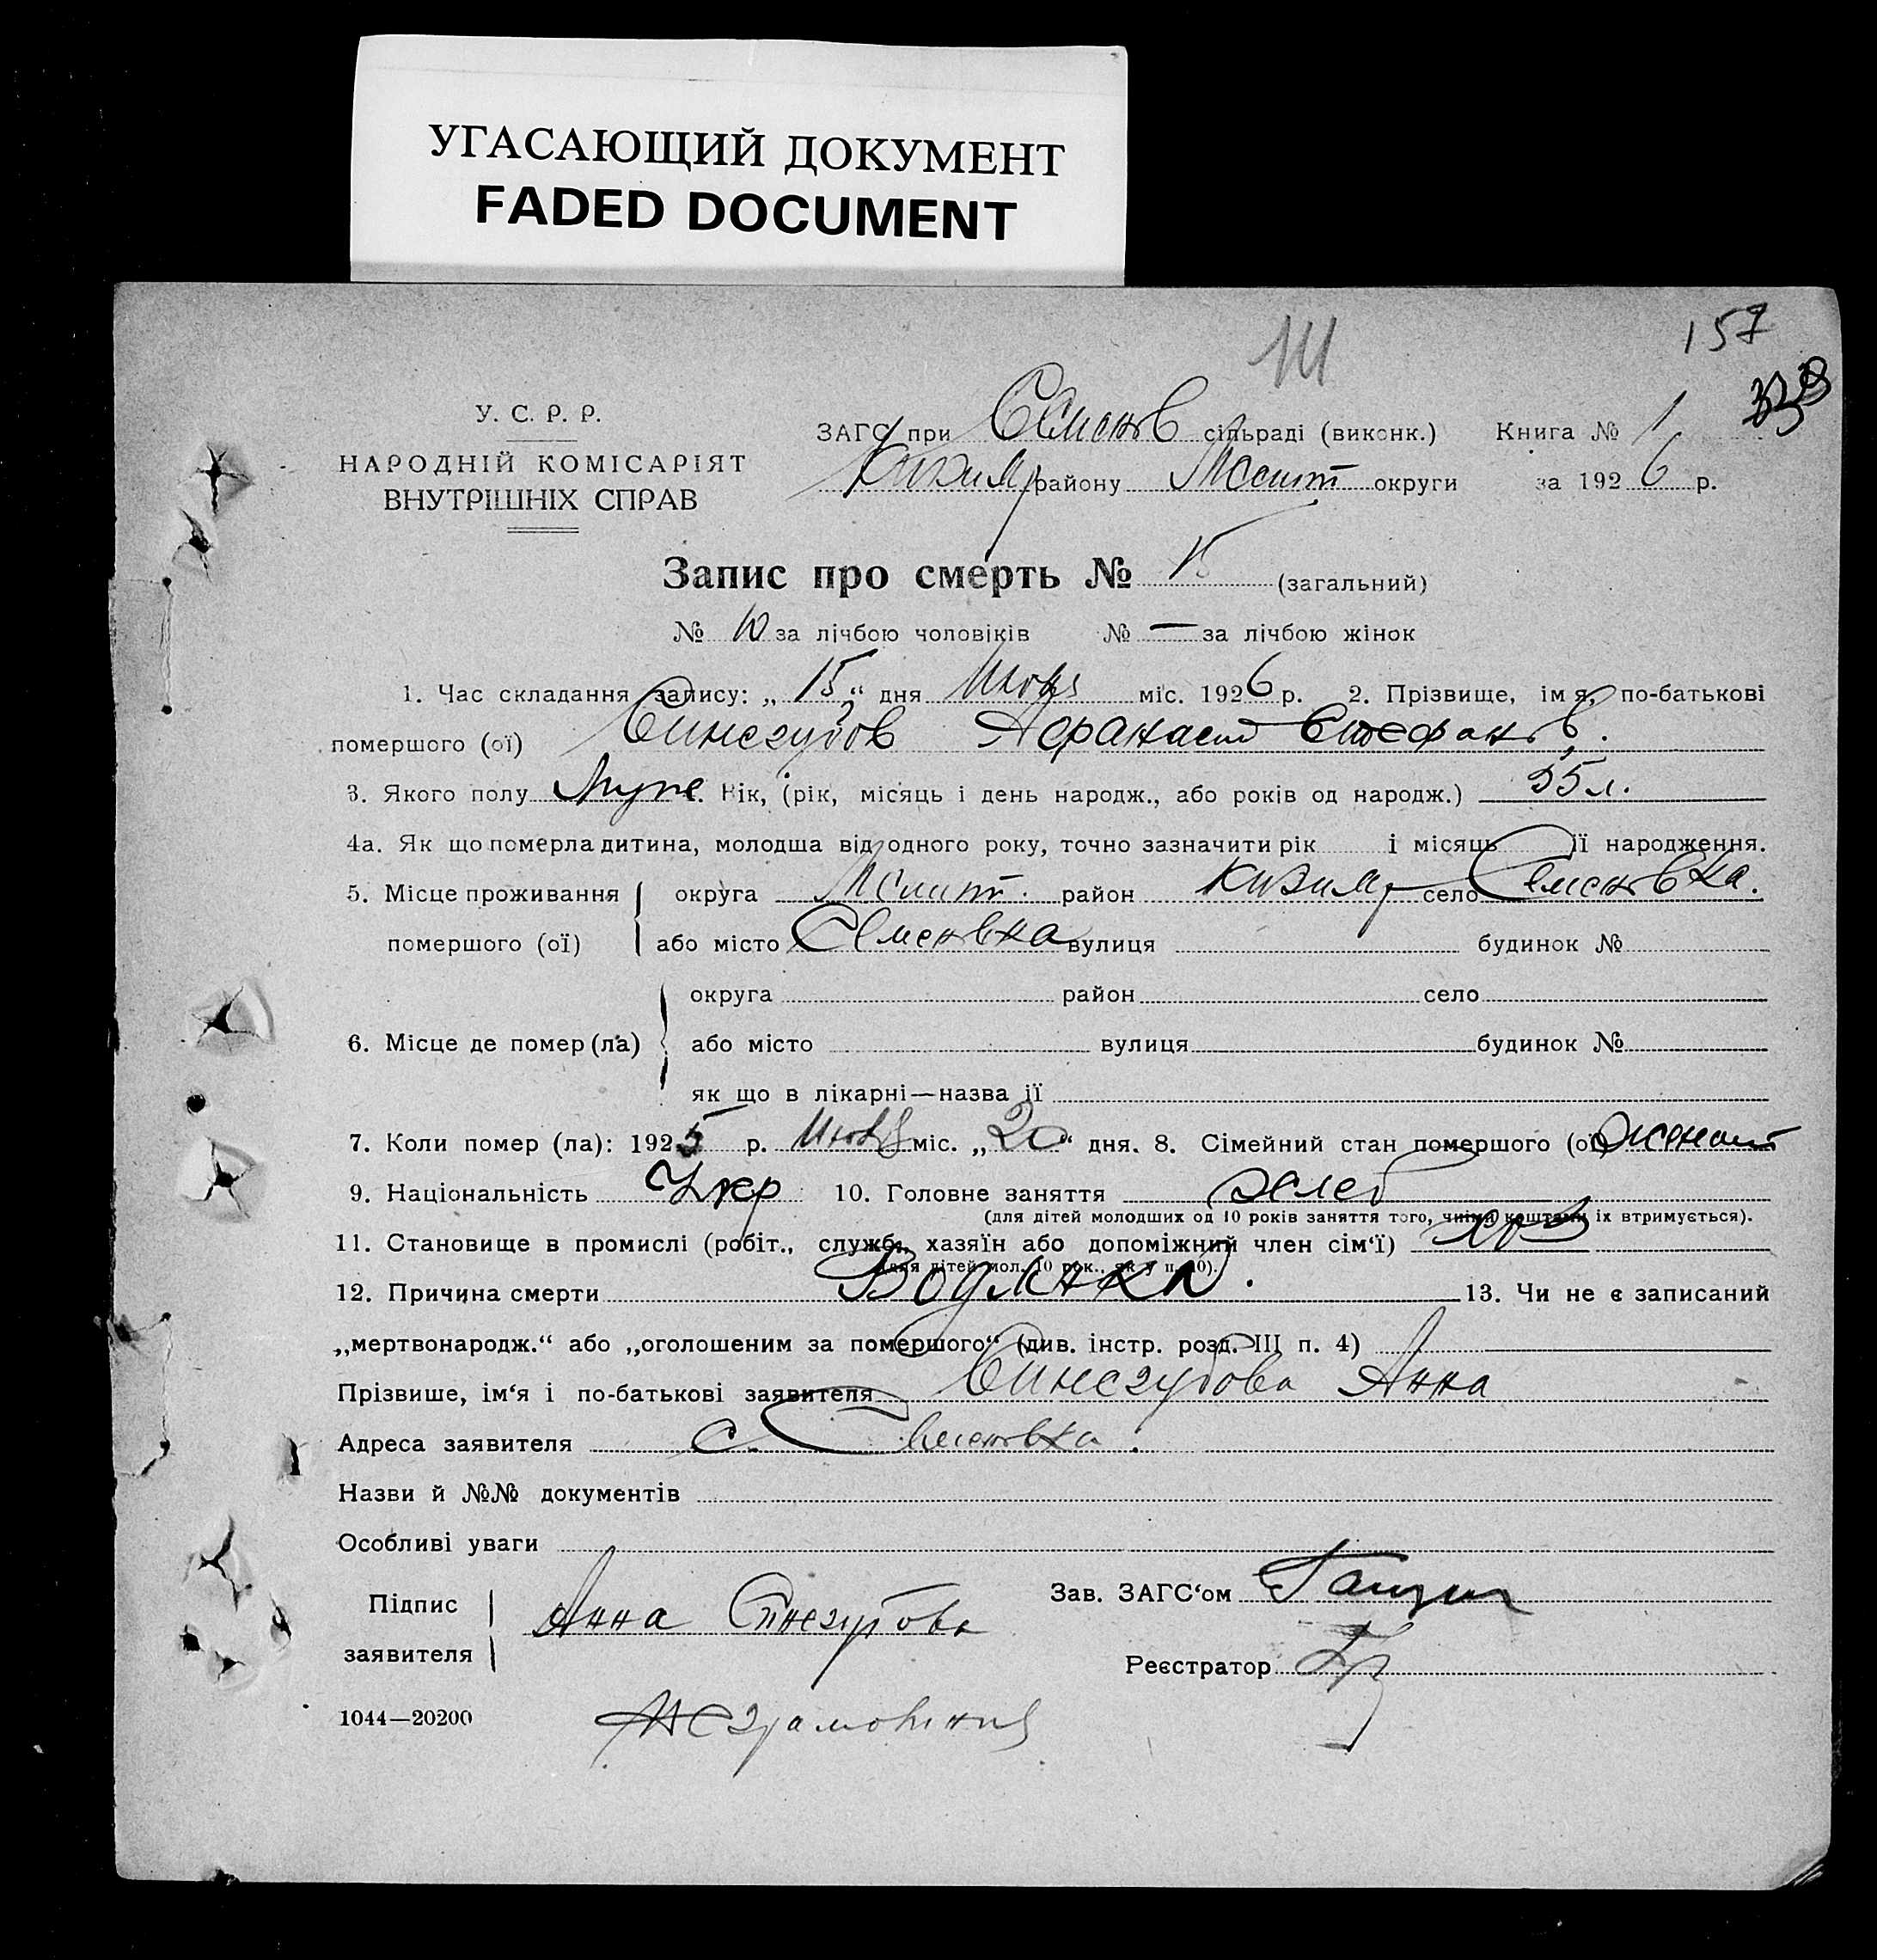 УГАСАЮЩИЙ ДОКУМЕНТ
FADED DOCUMENT
157
У. С. Р. Р.
НАРОДНІЙ КОМІСАРІЯТ
ВНУТРІШНІХ СПРАВ
ЗАГС при Семенов сільраді (виконк.) Книга № 1
району Мелит округи за 1926 р.
Запис про смерть № 15 (загальний)
№ 10 за лічбою чоловіків № — за лічбою жінок
1. Час складання запису: „15“ дня міс. 1926 р. 2. Прізвище, імя, по-батькові
помершого (ої) Синегубов Афанасий Стефанов.
3. Якого полу Муже. Вік, (рік, місяць і день народж., або років од народж.) 55 л.
4а. Як що померла дитина, молодша від одного року, точно зазначити рік і місяць її народження.
5. Місце проживання округа Мелит. район Кизияр село Семеновка.
помершого (ої) або місто Семеновка вулиця будинок №
округа район село
6. Місце де помер (ла) або місто вулиця будинок №
як що в лікарні—назва її
7. Коли помер (ла): 1925 р. міс. „20“ дня. 8. Сімейний стан помершого (ої) женат
9. Національність Укр 10. Головне заняття хлеб
(для дітей молодших од 10 років заняття того, чиїми коштами їх втримується).
11. Становище в промислі (робіт., служб., хазяїн або допоміжний член сім‘ї) хоз
(для дітей мол. 10 рок., як у п. 10).
12. Причина смерти Водянка. 13. Чи не є записаний
„мертвонародж.“ або „оголошеним за помершого“ (див. інстр. розд. III п. 4)
Прізвише, ім‘я і по-батькові заявителя Синегубова Анна
Адреса заявителя с. Семеновка.
Назви й №№ документів
Особливі уваги
Підпис Анна Синегубова Зав. ЗАГС‘ом
заявителя Реєстратор
1044—20200 неграмотная